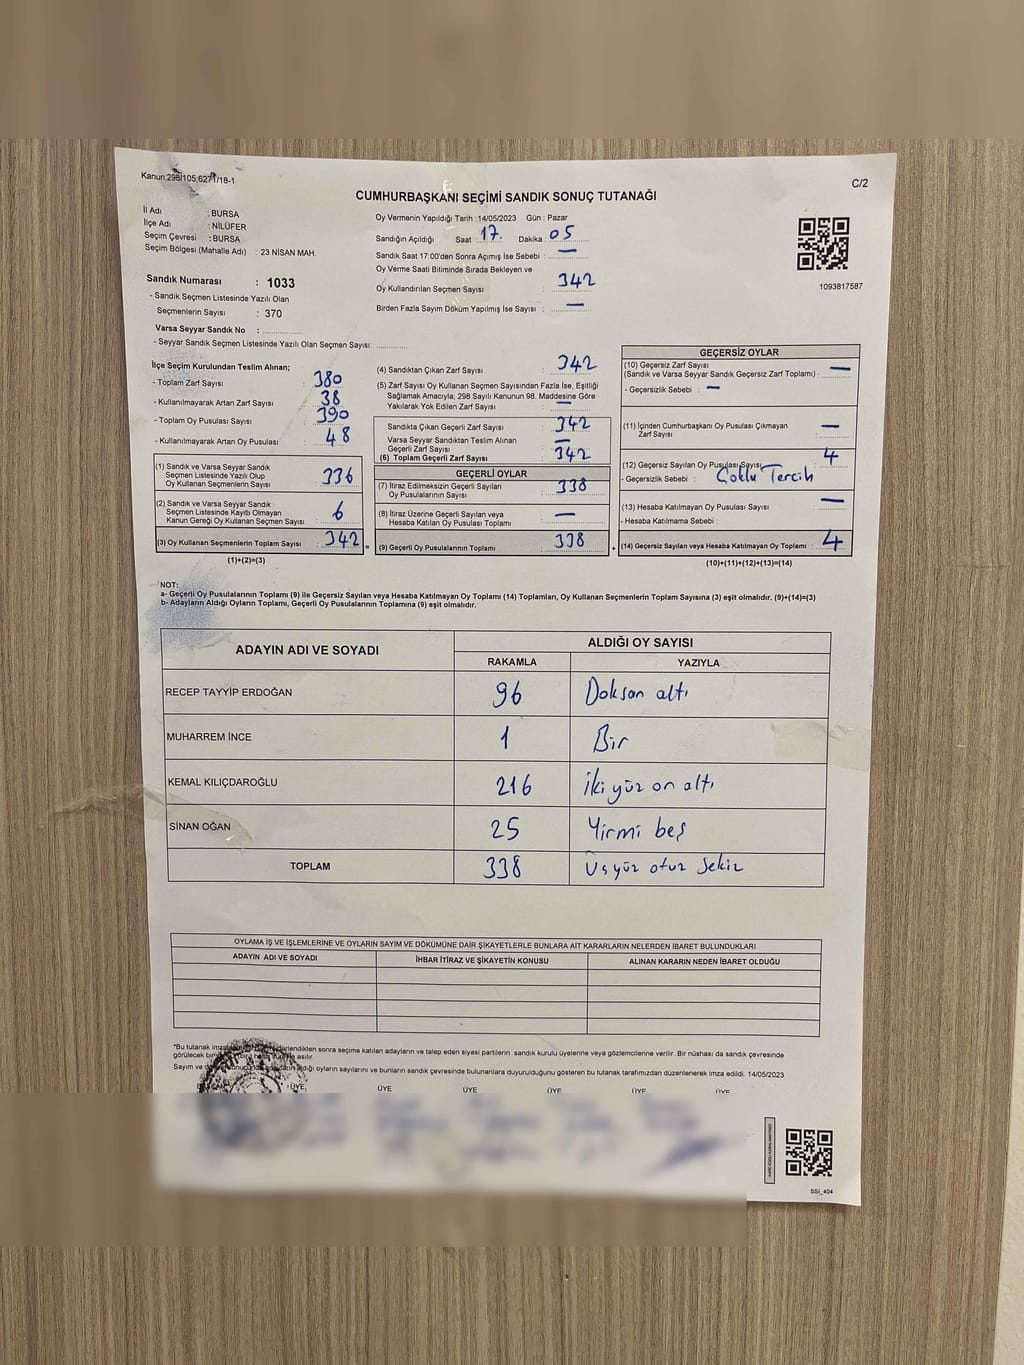 Kanun:298/105;6271/18-1
C/2
CUMHURBAŞKANI SEÇİMİ SANDIK SONUÇ TUTANAĞI
İl Adı : BURSA
İlçe Adı : NİLÜFER
Seçim Çevresi : BURSA
Seçim Bölgesi (Mahalle Adı) : 23 NİSAN MAH
Sandık Numarası : 1033
- Sandık Seçmen Listesinde Yazılı Olan
Seçmenlerin Sayısı : 370
Varsa Seyyar Sandık No : ............
- Seyyar Sandık Seçmen Listesinde Yazılı Olan Seçmen Sayısı: ............
Oy Vermenin Yapıldığı Tarih :14/05/2023 Gün : Pazar
Sandığın Açıldığı Saat 17. Dakika : 05
Sandık Saat 17:00'den Sonra Açımış İse Sebebi : —
Oy Verme Saati Bitiminde Sırada Bekleyen ve
Oy Kullandırılan Seçmen Sayısı : 342
Birden Fazla Sayım Döküm Yapılmış İse Sayısı : —
1093817587
İlçe Seçim Kurulundan Teslim Alınan;
- Toplam Zarf Sayısı : 380
- Kullanılmayarak Artan Zarf Sayısı : 38
- Toplam Oy Pusulası Sayısı : 390
- Kullanılmayarak Artan Oy Pusulası : 48
(1) Sandık ve Varsa Seyyar Sandık
Seçmen Listesinde Yazılı Olup
Oy Kullanan Seçmenlerin Sayısı : 336
(2) Sandık ve Varsa Seyyar Sandık
Seçmen Listesinde Kayıtlı Olmayan
Kanun Gereği Oy Kullanan Seçmen Sayısı : 6
(3) Oy Kullanan Seçmenlerin Toplam Sayısı : 342
(1)+(2)=(3)
(4) Sandıktan Çıkan Zarf Sayısı : 342
(5) Zarf Sayısı Oy Kullanan Seçmen Sayısından Fazla İse, Eşitliği
Sağlamak Amacıyla; 298 Sayılı Kanunun 98. Maddesine Göre
Yakılarak Yok Edilen Zarf Sayısı : —
Sandıkta Çıkan Geçerli Zarf Sayısı : 342
Varsa Seyyar Sandıktan Teslim Alınan
Geçerli Zarf Sayısı : —
(6) Toplam Geçerli Zarf Sayısı : 342
GEÇERLİ OYLAR
(7) İtiraz Edilmeksizin Geçerli Sayılan
Oy Pusulalarının Sayısı : 338
(8) İtiraz Üzerine Geçerli Sayılan veya
Hesaba Katılan Oy Pusulası Toplamı : —
=
(9) Geçerli Oy Pusulalarının Toplamı : 338
+
GEÇERSİZ OYLAR
(10) Geçersiz Zarf Sayısı
(Sandık ve Varsa Seyyar Sandık Geçersiz Zarf Toplamı) : —
- Geçersizlik Sebebi : —
(11) İçinden Cumhurbaşkanı Oy Pusulası Çıkmayan
Zarf Sayısı : —
(12) Geçersiz Sayılan Oy Pusulası Sayısı : 4
- Geçersizlik Sebebi : Çoklu Tercih
(13) Hesaba Katılmayan Oy Pusulası Sayısı : —
- Hesaba Katılmama Sebebi :
(14) Geçersiz Sayılan veya Hesaba Katılmayan Oy Toplamı : 4
(10)+(11)+(12)+(13)=(14)
NOT:
a- Geçerli Oy Pusulalarının Toplamı (9) ile Geçersiz Sayılan veya Hesaba Katılmayan Oy Toplamı (14) Toplamları, Oy Kullanan Seçmenlerin Toplam Sayısına (3) eşit olmalıdır. (9)+(14)=(3)
b- Adayların Aldığı Oyların Toplamı, Geçerli Oy Pusulalarının Toplamına (9) eşit olmalıdır.
ADAYIN ADI VE SOYADI
ALDIĞI OY SAYISI
RAKAMLA YAZIYLA
RECEP TAYYİP ERDOĞAN 96 Doksan altı
MUHARREM İNCE 1 Bir
KEMAL KILIÇDAROĞLU 216 İki yüz on altı
SİNAN OĞAN 25 Yirmi beş
TOPLAM 338 Üçyüz otuz sekiz
OYLAMA İŞ VE İŞLEMLERİNE VE OYLARIN SAYIM VE DÖKÜMÜNE DAİR ŞİKAYETLERLE BUNLARA AİT KARARLARIN NELERDEN İBARET BULUNDUKLARI
ADAYIN ADI VE SOYADI İHBAR İTİRAZ VE ŞİKAYETİN KONUSU ALINAN KARARIN NEDEN İBARET OLDUĞU
*Bu tutanak sonra seçime katılan adayların ve talep eden siyasi partilerin sandık kurulu üyelerine veya gözlemcilerine verilir .Bir nüshası da sandık çevresinde
görülecek asılır.
Sayım ve aldığı oyların sayılarını ve bunların sandık çevresinde bulunanlara duyurulduğunu gösteren bu tutanak tarafımızdan düzenlenerek imza edildi. 14/05/2023
ÜYE ÜYE ÜYE ÜYE ÜYE
SSİ_404